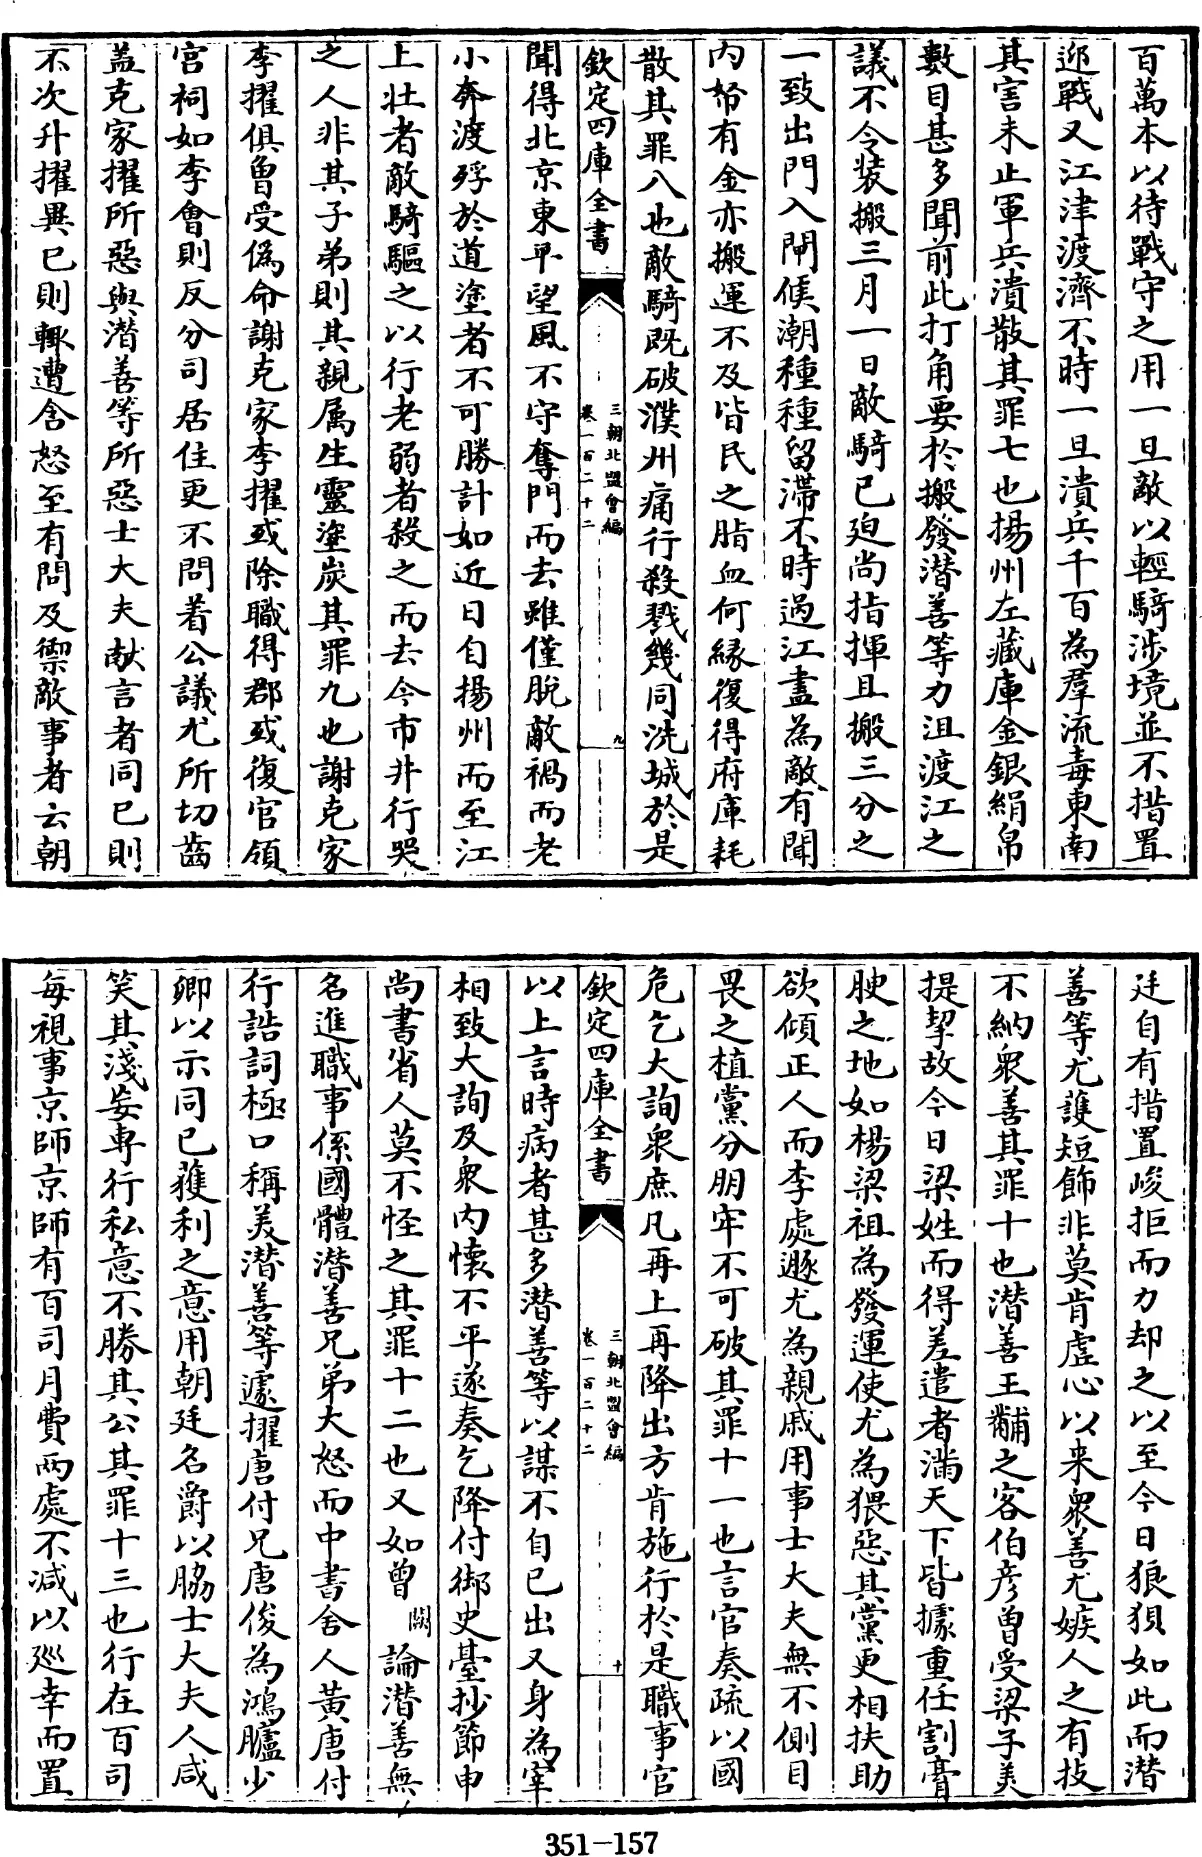 百萬本以待戰守之用一旦敵以輕騎涉境並不措置
迎戰又江津渡濟不時一旦潰兵千百為羣流毒東南
其害未止軍兵潰散其罪七也揚州左藏庫金銀絹帛
數目甚多聞前此打角要於搬發潛善等力沮渡江之
議不令裝搬三月一日敵騎已廹尚指揮且搬三分之
一致出門入閘候潮種種留滯不時過江盡為敵有聞
内帑有金亦搬運不及皆民之脂血何縁復得府庫耗
散其罪八也敵騎既破濮州痛行殺戮幾同洗城於是
欽定四庫全書
三朝北盟會編
卷一百二十二
九
聞得北京東平望風不守奪門而去雖僅脱敵禍而老
小奔渡殍於道塗者不可勝計如近日自揚州而至江
上壮者敵騎驅之以行老弱者殺之而去今市井行哭
之人非其子弟則其親属生靈塗炭其罪九也謝克家
李擢俱曽受偽命謝克家李擢或除職得郡或復官領
宫祠如李會則反分司居住更不問着公議尤所切齒
盖克家擢所惡與潛善等所惡士大夫献言者同已則
不次升擢異已則輙遭含怒至有問及禦敵事者云朝
廷自有措置峻拒而力却之以至今日狼狽如此而潛
善等尤護短飾非莫肯虚心以来衆善尤嫉人之有技
不納衆善其罪十也潛善王黼之客伯彦曽受梁子美
提挈故今日梁姓而得差遣者滿天下皆據重任割膏
腴之地如楊梁祖為發運使尤為猥惡其黨更相扶助
欲傾正人而李處遯尤為親戚用事士大夫無不側目
畏之植黨分朋牢不可破其罪十一也言官奏疏以國
危乞大詢衆庶凡再上再降出方肯施行於是職事官
欽定四庫全書
三朝北盟會編
卷一百二十二
十
以上言時病者甚多潛善等以謀不自已出又身為宰
相致大詢及衆内懷不平遂奏乞降付御史臺抄節申
尚書省人莫不怪之其罪十二也又如曾闕論潛善無
名進職事係國體潛善兄弟大怒而中書舍人黄唐付
行誥詞極口稱美潛善等遽擢唐付兄唐俊為鴻臚少
卿以示同已獲利之意用朝廷名爵以脇士大夫人咸
笑其淺妄専行私意不勝其公其罪十三也行在百司
每視事京師京師有百司月費兩處不減以巡幸而置
351-157